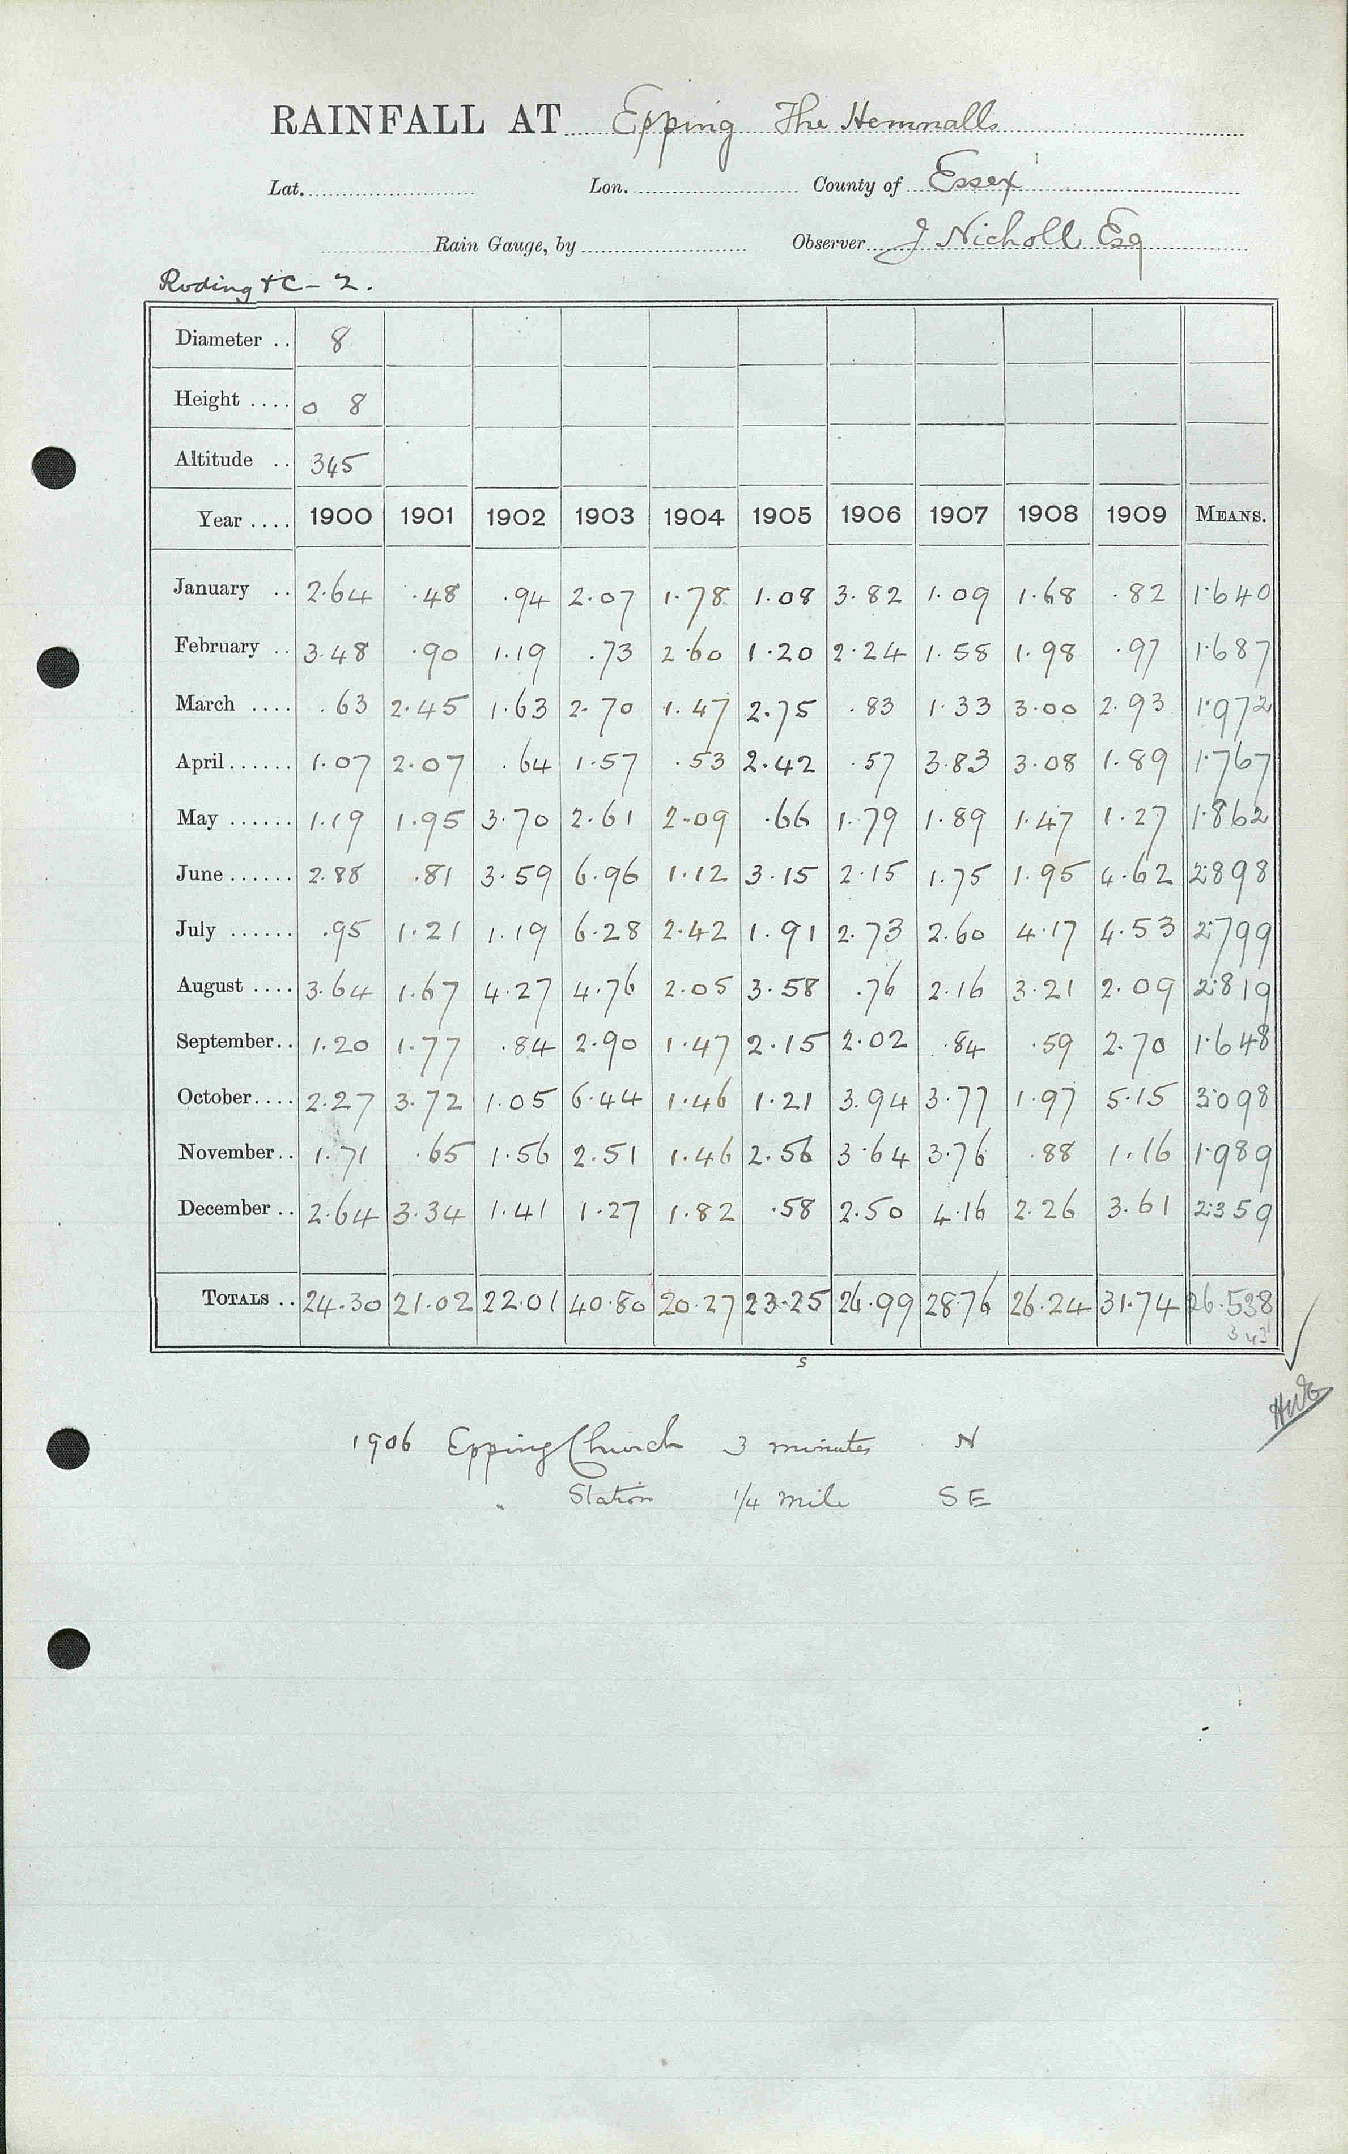 RAINFALL AT Epping The Hemnalls
Lat. Lon. County of Essex
Rain Gauge, by Observer J Nicholl Esq
Roding &C - 2.
Diameter .. 8
Height .... 0 8
Altitude .. 345
Year .... 1900 1901 1902 1903 1904 1905 1906 1907 1908 1909 MEANS.
January .. 2.64 .48 .94 2.07 1.78 1.08 3.82 1.09 1.68 .82 1.640
February .. 3.48 .90 1.19 .73 2.60 1.20 2.24 1.58 1.98 .97 1.687
March .... .63 2.45 1.63 2.70 1.47 2.75 .83 1.33 3.00 2.93 1.972
April ...... 1.07 2.07 .64 1.57 .53 2.42 .57 3.83 3.08 1.89 1.767
May ...... 1.19 1.95 3.70 2.61 2.09 .66 1.79 1.89 1.47 1.27 1.862
June ...... 2.88 .81 3.59 6.96 1.12 3.15 2.15 1.75 1.95 4.62 2.898
July ...... .95 1.21 1.19 6.28 2.42 1.91 2.73 2.60 4.17 4.53 2.799
August .... 3.64 1.67 4.27 4.76 2.05 3.58 .76 2.16 3.21 2.09 2.819
September .. 1.20 1.77 .84 2.90 1.47 2.15 2.02 .84 .59 2.70 1.648
October .... 2.27 3.72 1.05 6.44 1.46 1.21 3.94 3.77 1.97 5.15 3.098
November .. 1.71 .65 1.56 2.51 1.46 2.56 3.64 3.76 .88 1.16 1.989
December .. 2.64 3.34 1.41 1.27 1.82 .58 2.50 4.16 2.26 3.61 2.359
TOTALS .. 24.30 21.02 22.01 40.80 20.27 23.25 26.99 28.76 26.24 31.74 26.538
s
1906 Epping Church 3 minutes N
" Station 1/4 mile SE